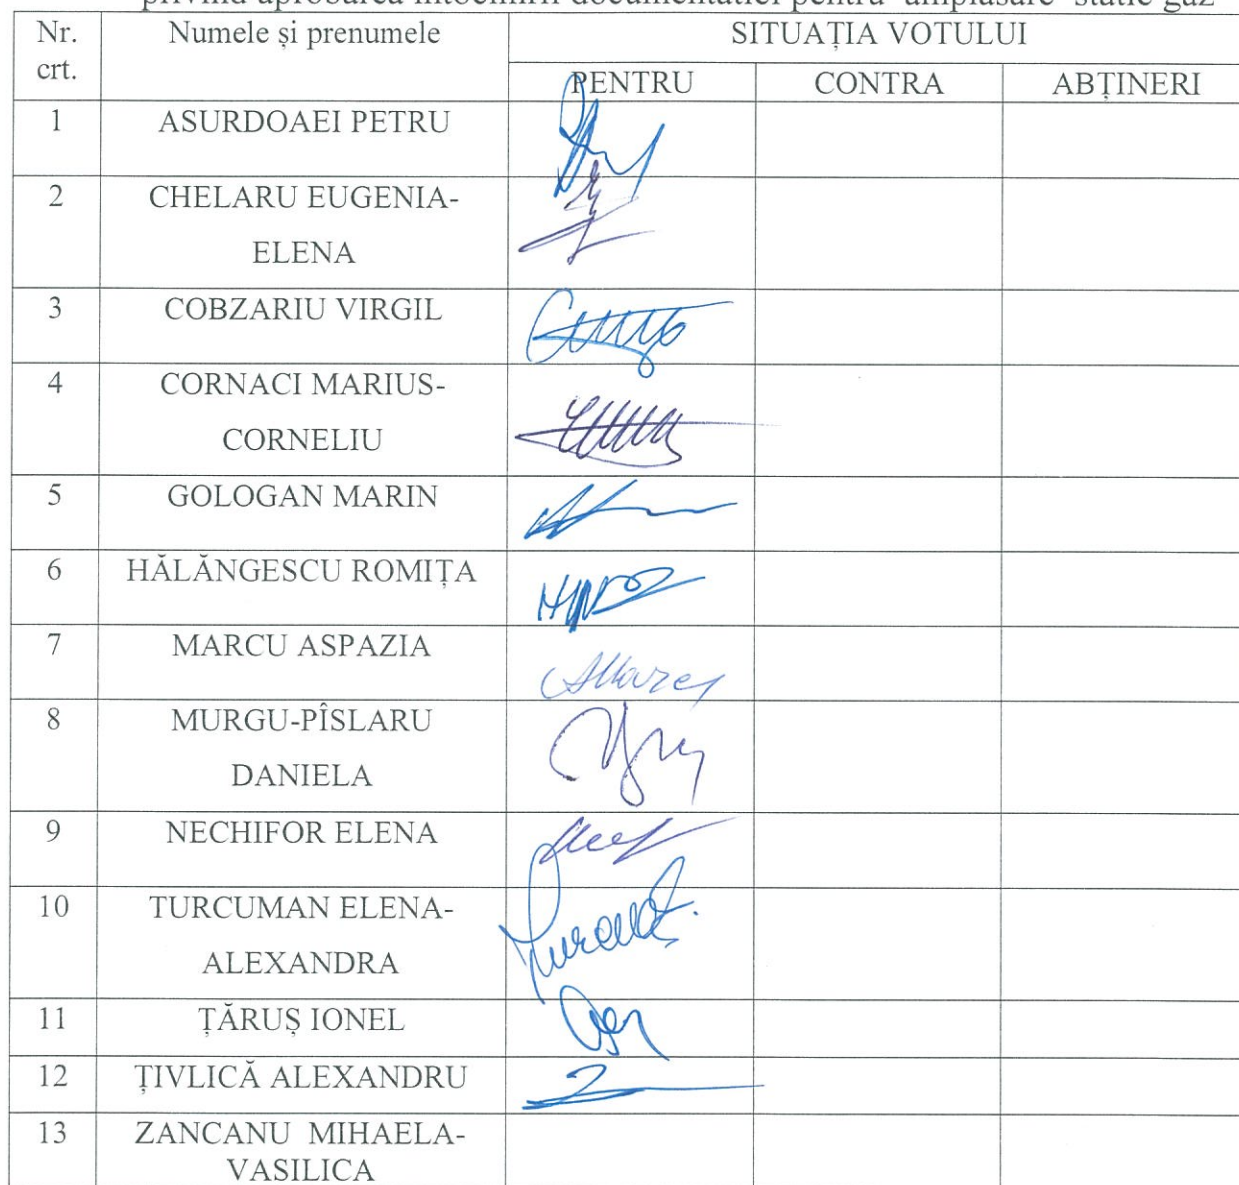 privind aprobarea întocmirii documentației pentru amplasare static gaz
Nr. crt. Numele și prenumele SITUAȚIA VOTULUI
PENTRU CONTRA ABȚINERI
1 ASURDOAEI PETRU
2 CHELARU EUGENIA-
ELENA
3 COBZARIU VIRGIL
4 CORNACI MARIUS-
CORNELIU
5 GOLOGAN MARIN
6 HĂLĂNGESCU ROMIȚA
7 MARCU ASPAZIA
8 MURGU-PÎSLARU
DANIELA
9 NECHIFOR ELENA
10 TURCUMAN ELENA-
ALEXANDRA
11 ȚĂRUȘ IONEL
12 ȚIVLICĂ ALEXANDRU
13 ZANCANU MIHAELA-
VASILICA